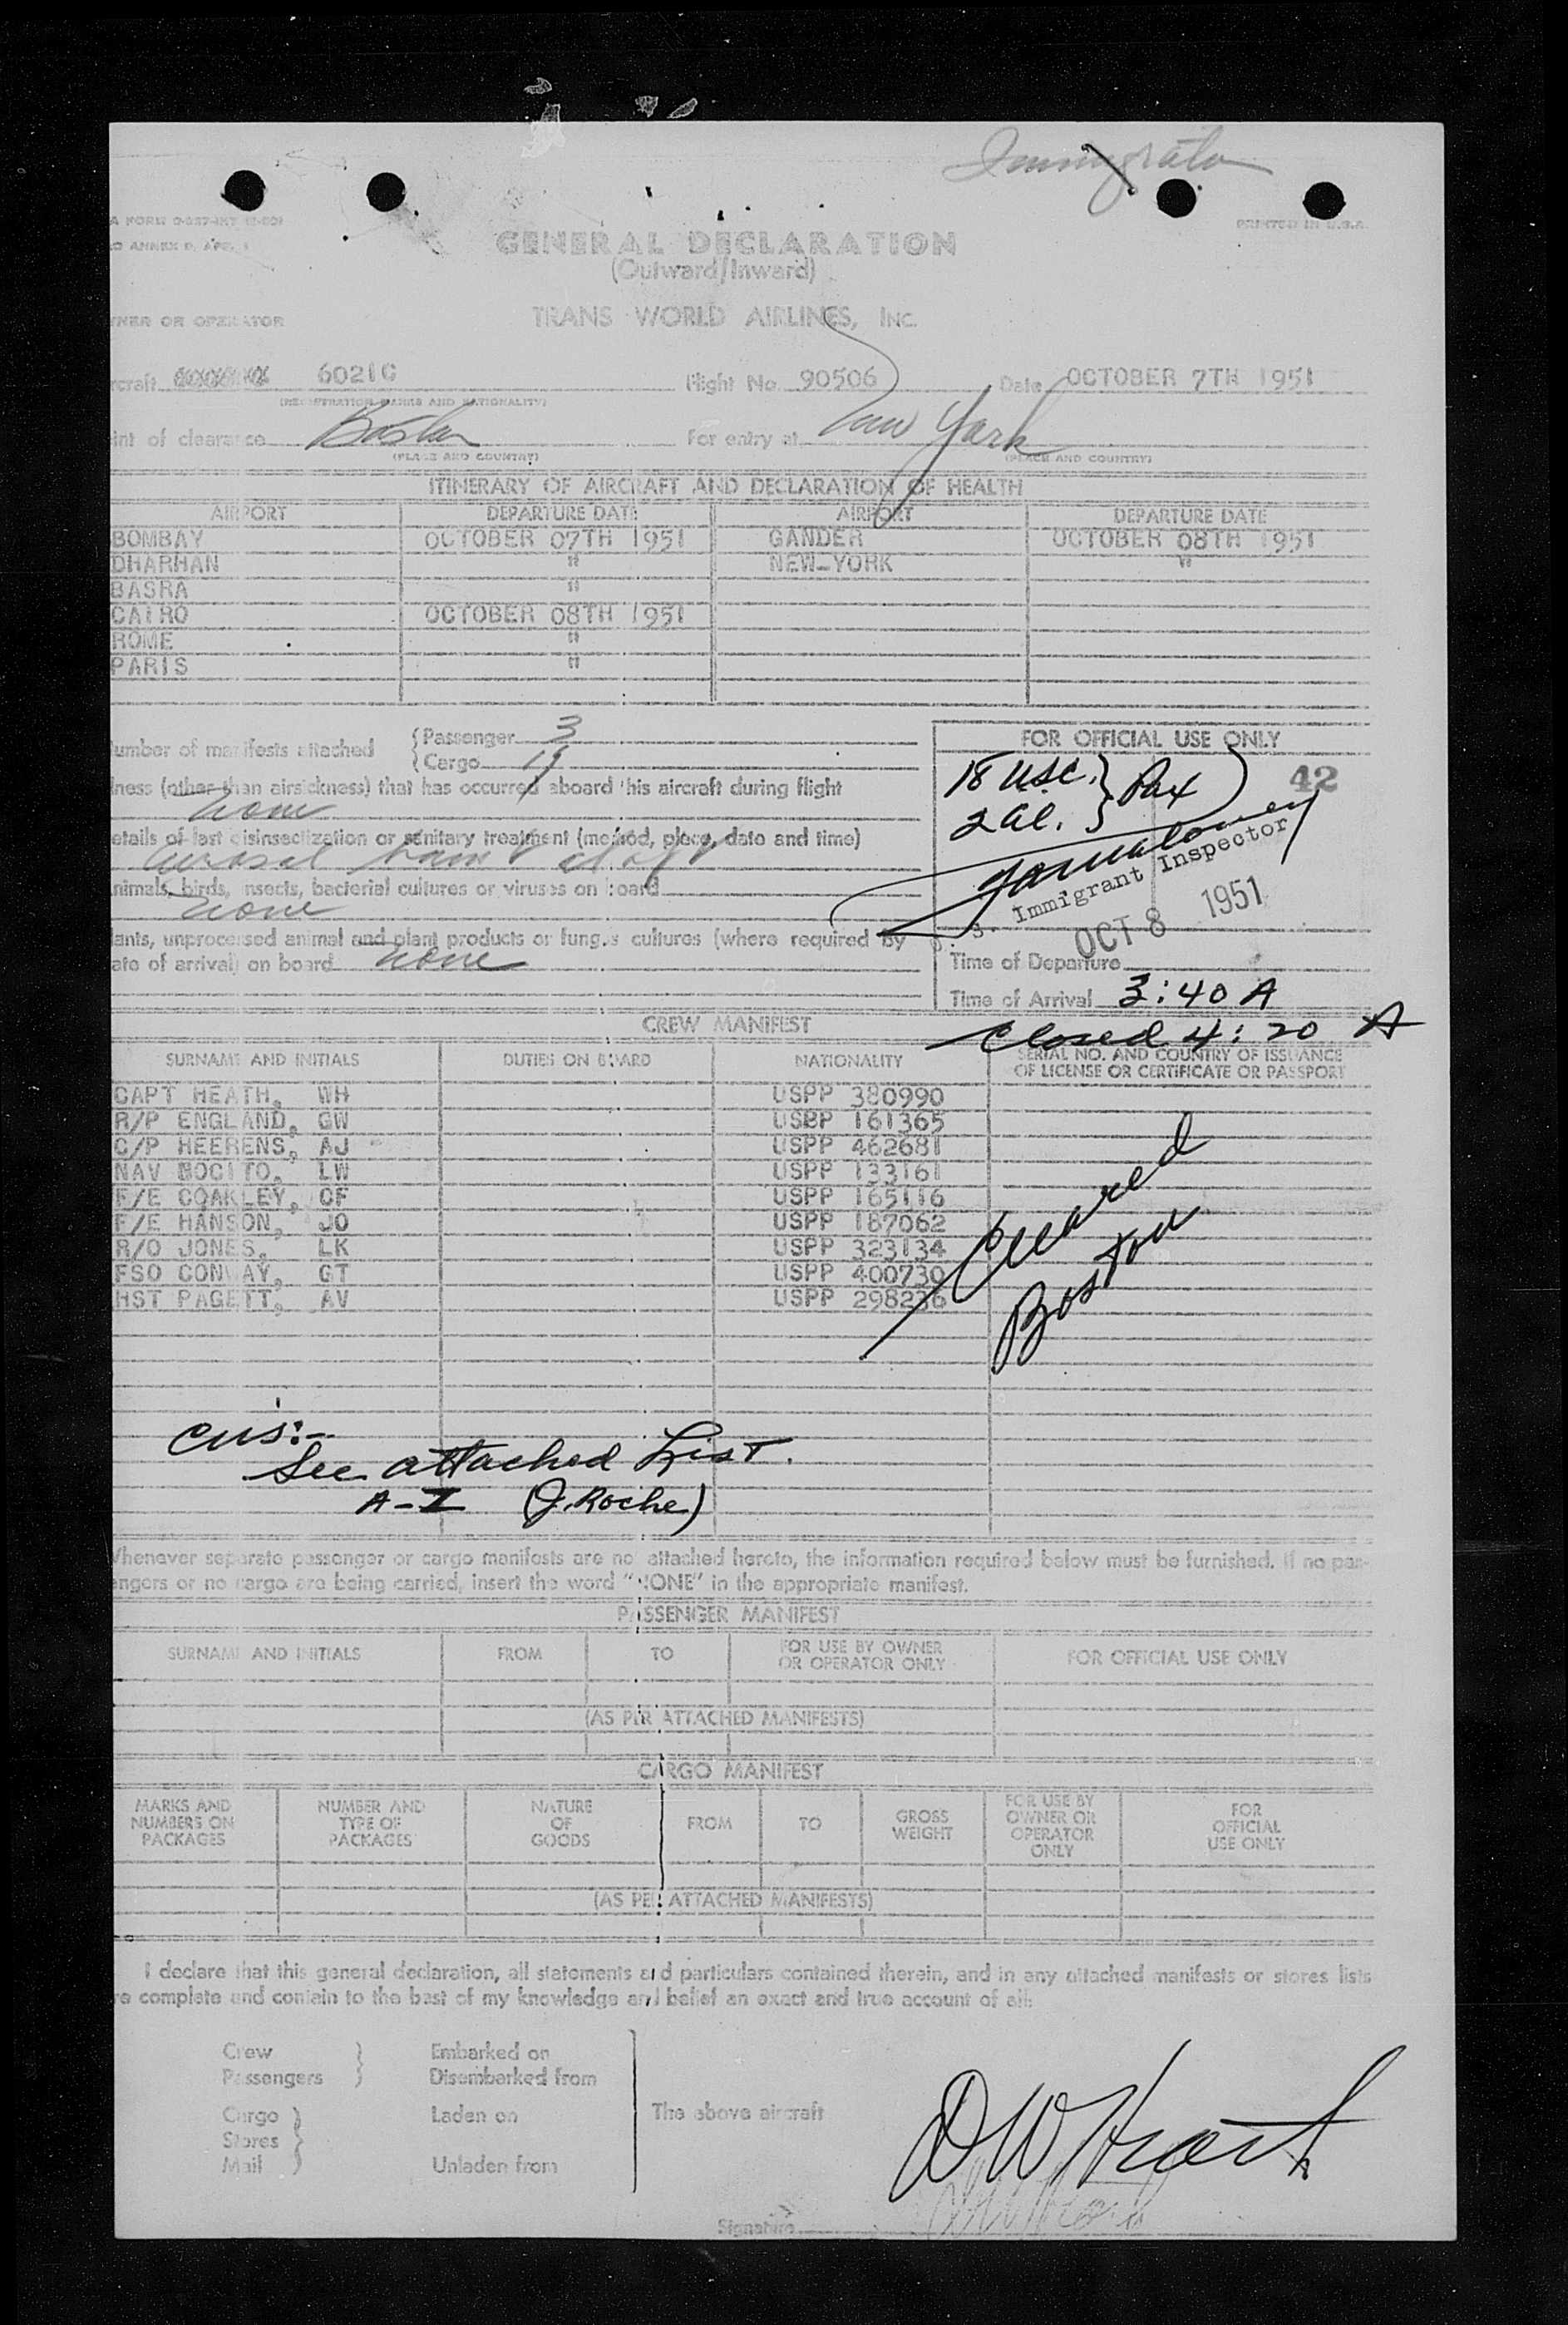 Immigration
A FORM 0-357-INT
O ANNEX 9, APP. 1
PRINTED IN U.S.A.
GENERAL DECLARATION
(Outward/Inward)
NER OR OPERATOR TRANS WORLD AIRLINES, INC.
rcraft 6021C Flight No. 90506 Date OCTOBER 7TH 1951
(REGISTRATION MARKS AND NATIONALITY)
int of clearance Boston For entry at New York
(PLACE AND COUNTRY) (PLACE AND COUNTRY)
ITINERARY OF AIRCRAFT AND DECLARATION OF HEALTH
AIRPORT DEPARTURE DATE AIRPORT DEPARTURE DATE
BOMBAY OCTOBER 07TH 1951 GANDER OCTOBER 08TH 1951
DHARHAN " NEW-YORK "
BASRA "
CAIRO OCTOBER 08TH 1951
ROME "
PARIS "
umber of manifests attached {Passenger 3
{Cargo 19
lness (other than airsickness) that has occurred aboard this aircraft during flight
none
etails of last disinsectization or sanitary treatment (method, place, date and time)
Aerosol
nimals, birds, insects, bacterial cultures or viruses on board
none
lants, unprocessed animal and plant products or fungus cultures (where required by
ate of arrival) on board none
FOR OFFICIAL USE ONLY
18 USC. } Pax 42
2 al. }
U. S. Immigrant Inspector
OCT 8 1951
Time of Departure
Time of Arrival 3:40 A
Closed 4:20 A
CREW MANIFEST
SURNAME AND INITIALS DUTIES ON BOARD NATIONALITY SERIAL NO. AND COUNTRY OF ISSUANCE
OF LICENSE OR CERTIFICATE OR PASSPORT
CAPT HEATH, WH USPP 380990
R/P ENGLAND, GW USPP 161365
C/P HEERENS, AJ USPP 462681
NAV NOCITO, LW USPP 133161
F/E COAKLEY, CF USPP 165116
F/E HANSON, JO USPP 187062
R/O JONES, LK USPP 323134
FSO CONWAY, GT USPP 400730
HST PAGETT, AV USPP 298236
Cleared
Boston
cus:-
See attached List.
A-I (J. Roche)
Whenever separate passenger or cargo manifests are not attached hereto, the information required below must be furnished. If no pas-
engers or no cargo are being carried, insert the word "NONE" in the appropriate manifest.
PASSENGER MANIFEST
SURNAME AND INITIALS FROM TO FOR USE BY OWNER
OR OPERATOR ONLY FOR OFFICIAL USE ONLY
(AS PER ATTACHED MANIFESTS)
CARGO MANIFEST
MARKS AND
NUMBERS ON
PACKAGES
NUMBER AND
TYPE OF
PACKAGES
NATURE
OF
GOODS
FROM
TO
GROSS
WEIGHT
FOR USE BY
OWNER OR
OPERATOR
ONLY
FOR
OFFICIAL
USE ONLY
(AS PER ATTACHED MANIFESTS)
I declare that this general declaration, all statements and particulars contained therein, and in any attached manifests or stores lists
re complete and contain to the best of my knowledge and belief an exact and true account of all:
Crew } Embarked on
Passengers } Disembarked from
Cargo } Laden on The above aircraft
Stores }
Mail } Unladen from
Signature